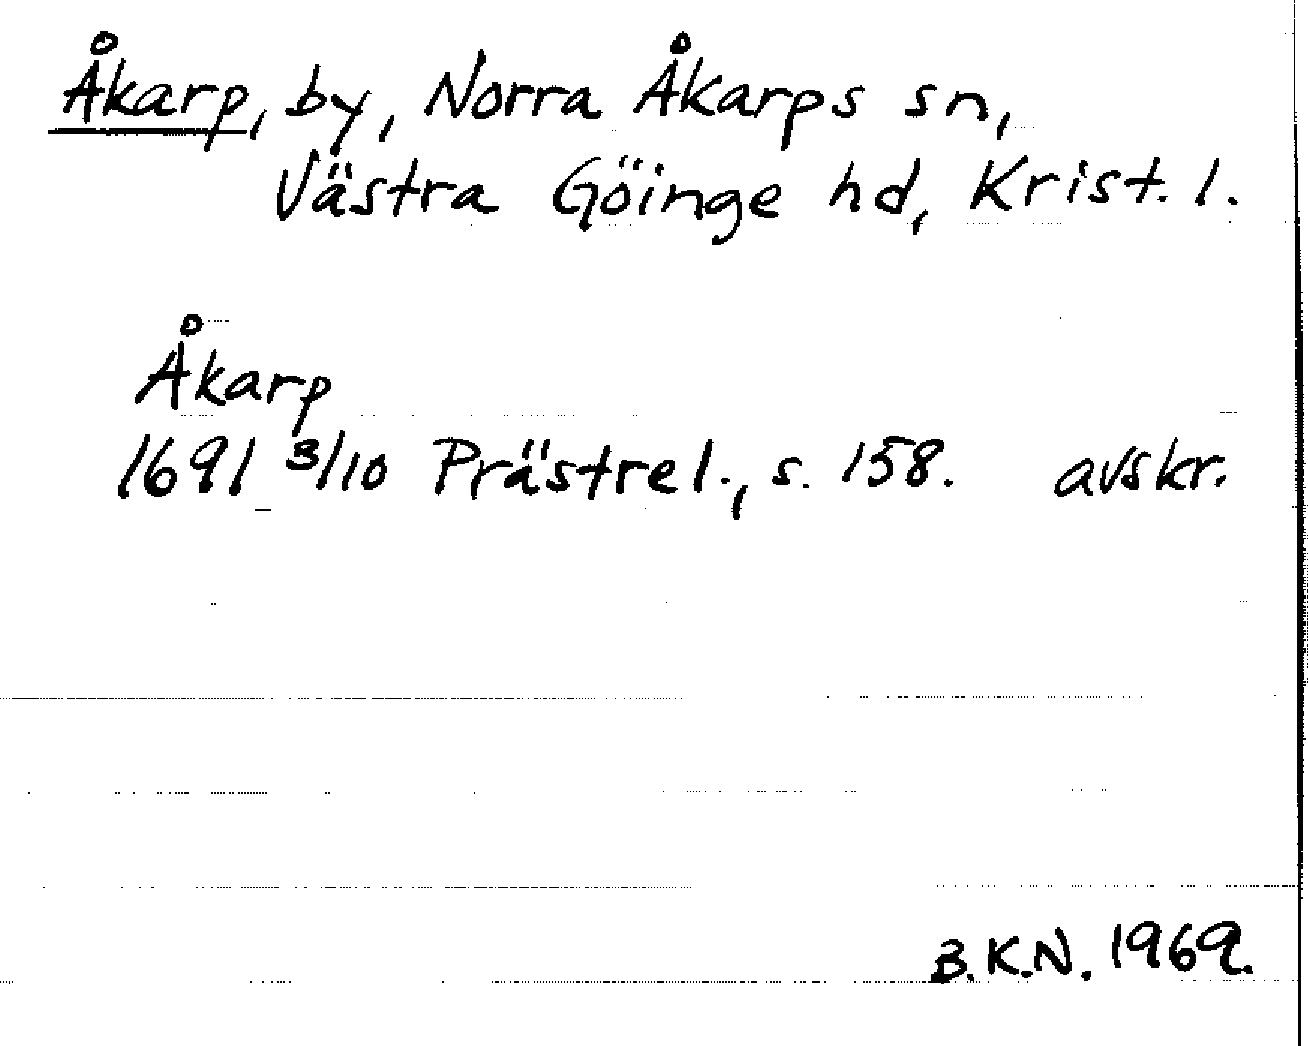 Åkarp, by, Norra Åkarps sn,
Västra Göinge hd, Krist. l.
Åkarp
1691 3/10 Prästrel., s. 158. avskr.
B.K.N. 1969.